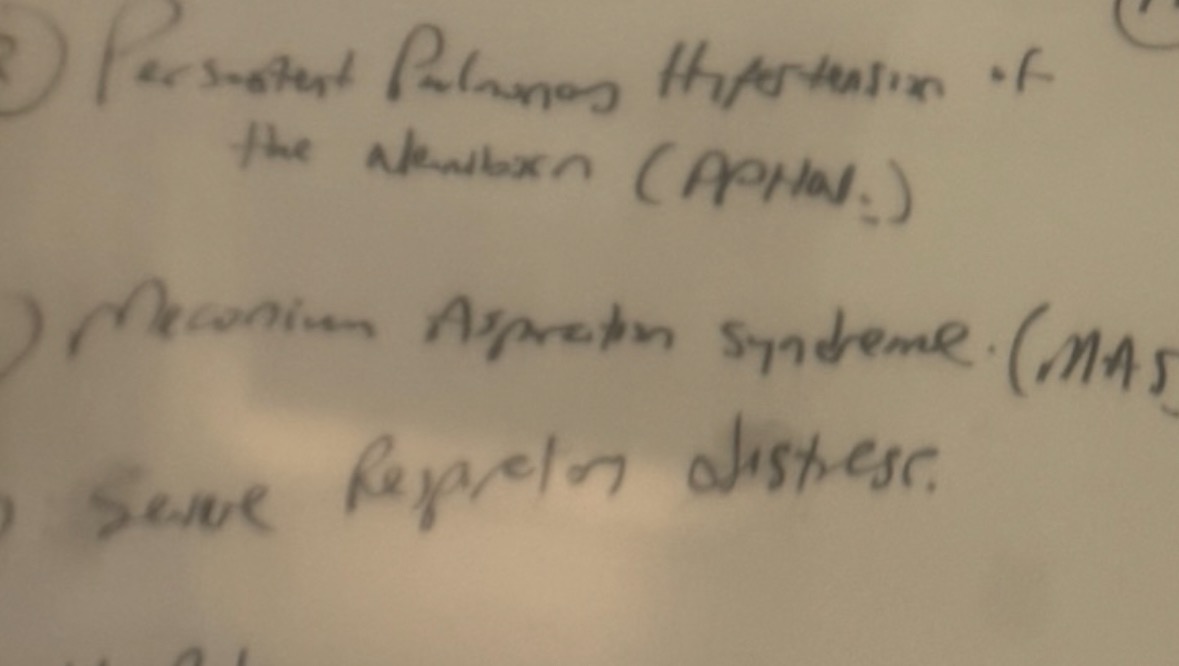 Persistent Pulmonary Hypertension of
the Newborn (PPHN.)
) Meconium Aspiration Syndreme. (MAS
) Severe Respiratory distress.